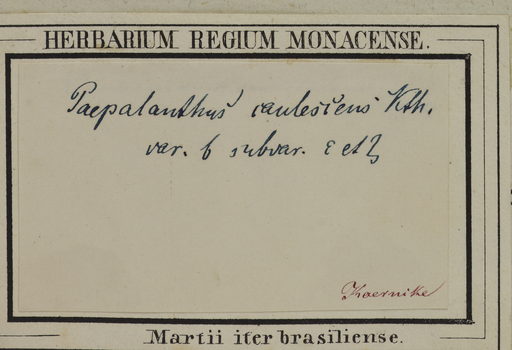 HERBARIUM REGIUM MONACENSE.
Paepalanthus caulescens Kth.
var. b subvar. ε et ζ
Koernike
Martii iter brasiliense.